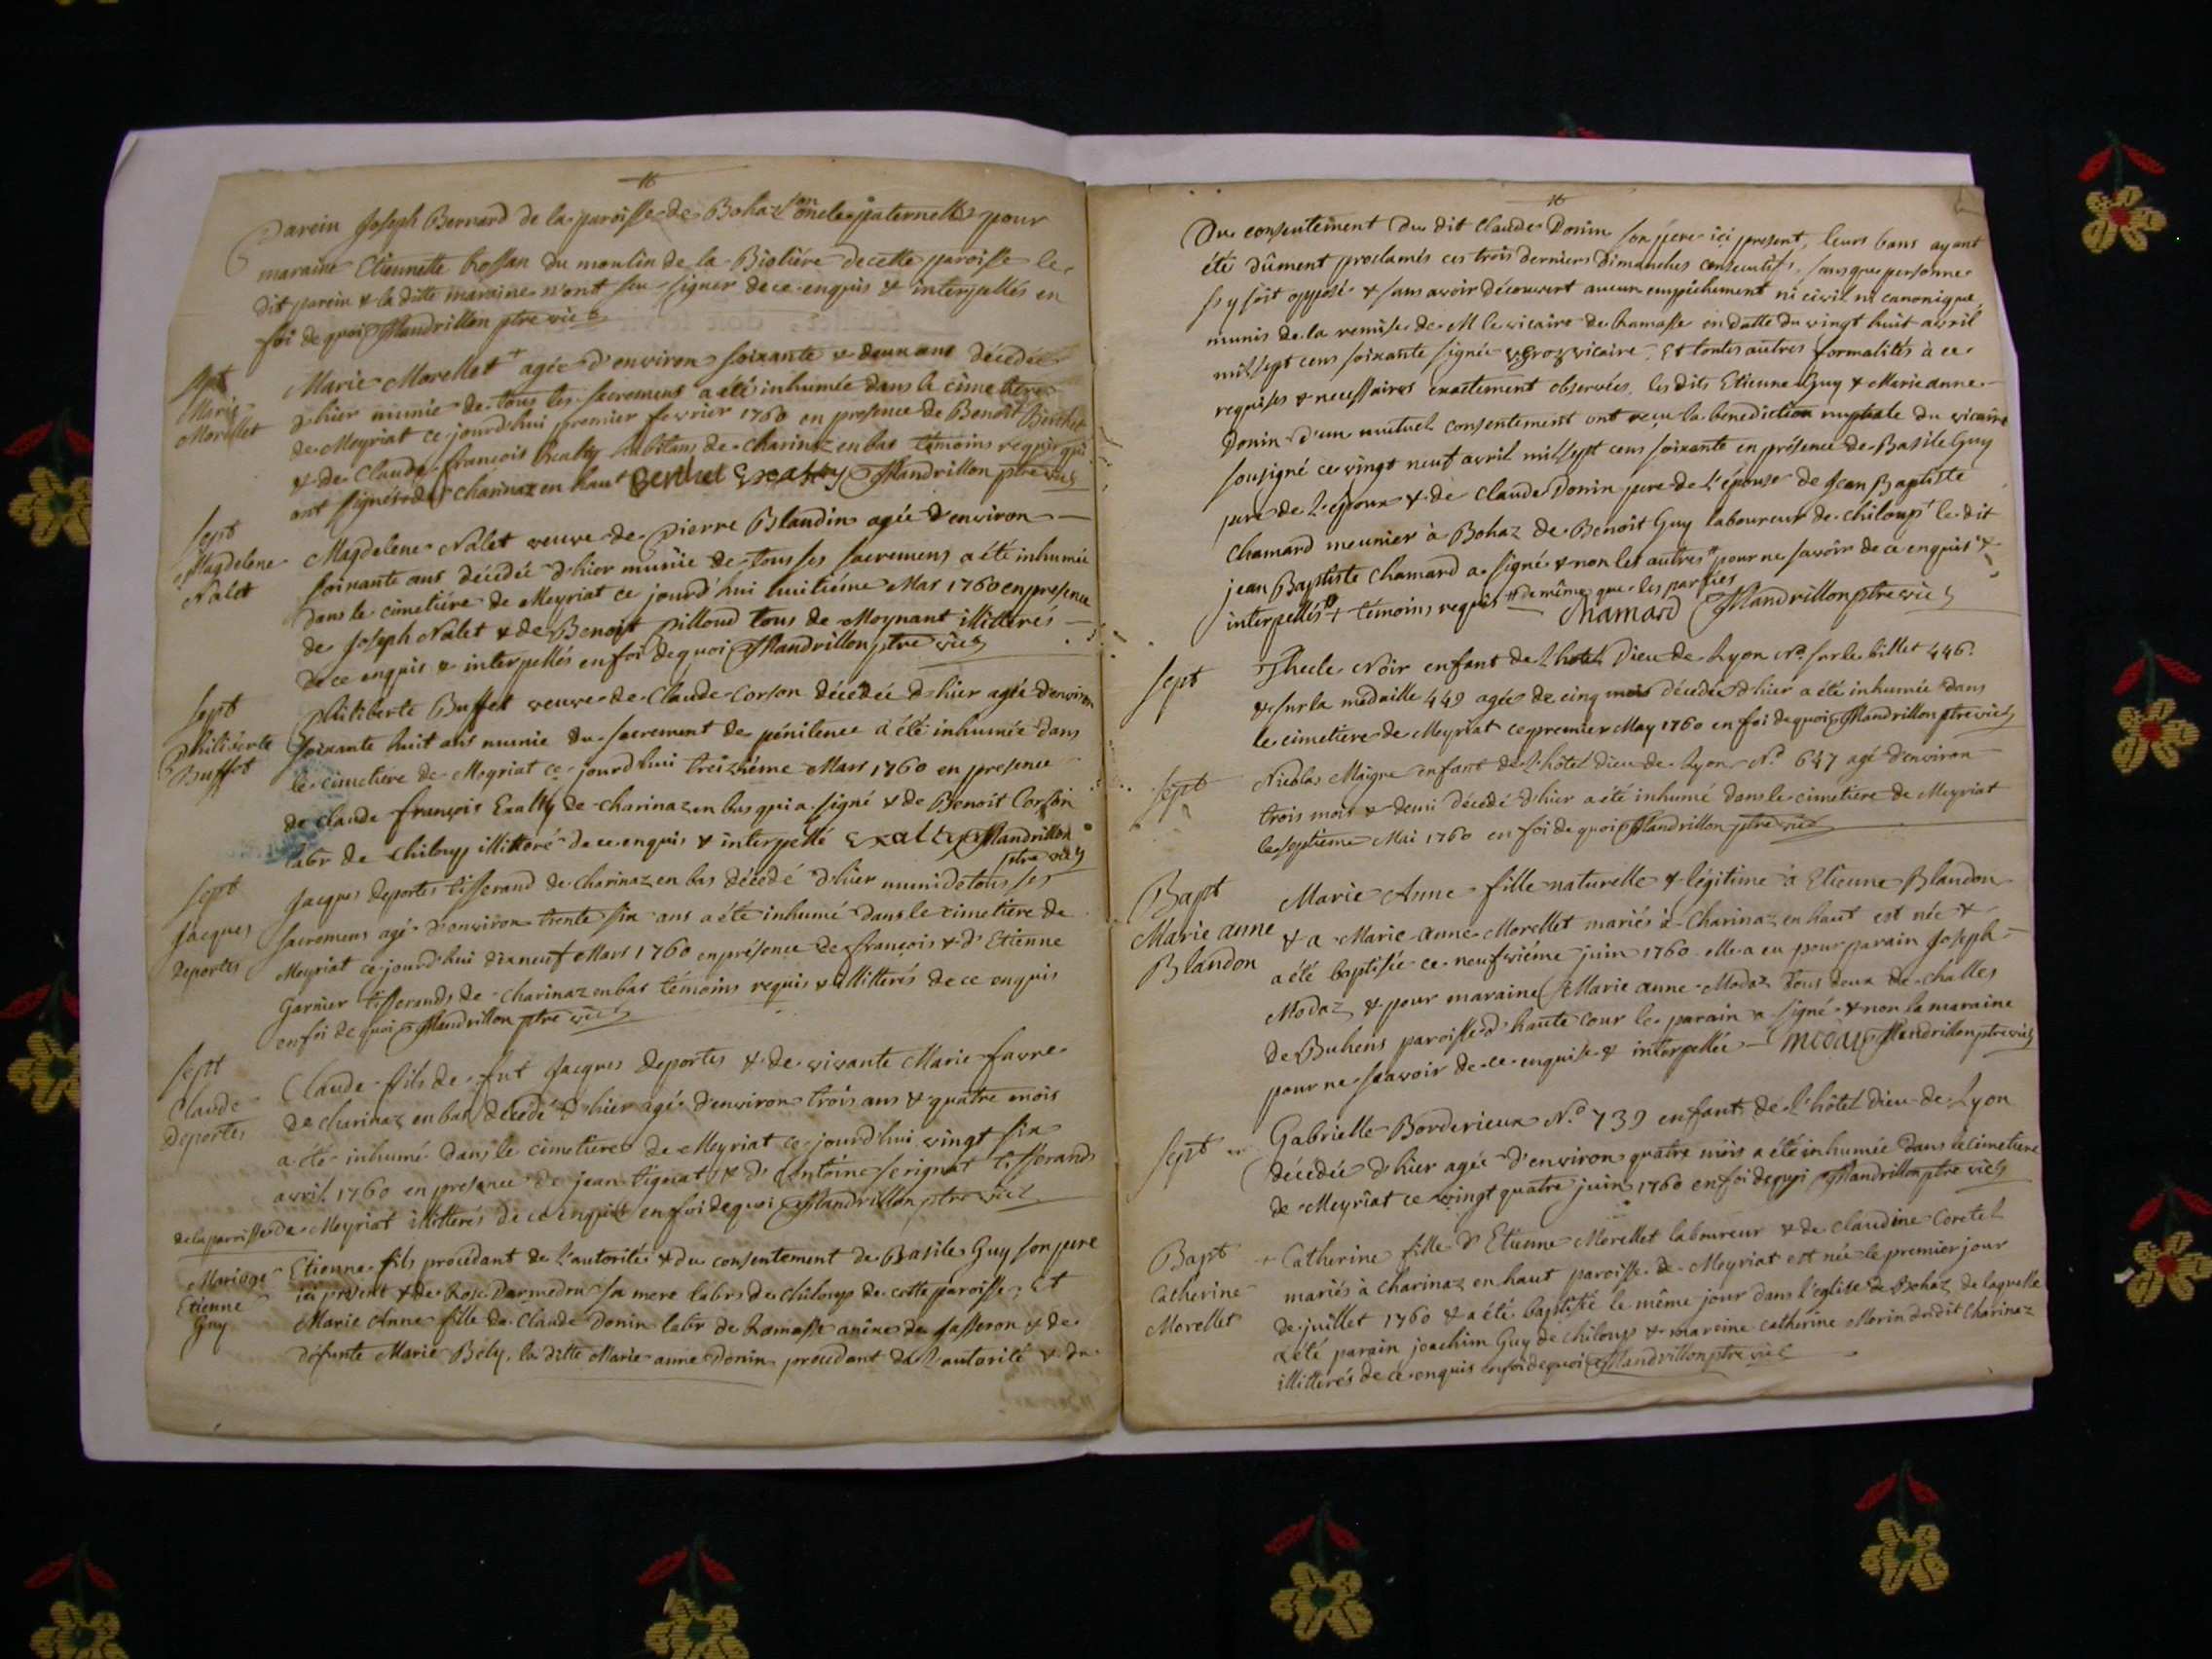 parein Joseph Bernard de la paroisse de Bohaz son oncle paternell pour
maraine Etiennette Rossan du moulin de la Biolière de cette paroisse le
dit parein & la ditte maraine n'ont sçu signer de ce enquis & interpellés en
foi de quoi Mandrillon ptre vic
Sept
Marie
Morellet
Marie Morellet + agée d'environ soixante & deux ans décedée
d'hier munie de tous les sacremens a été inhumée dans le cimetiere
de Meyriat ce jourd'hui premier fevrier 1760 en presence de Benoit Berthet
& de Claude françois Exalty habitans de charinaz en bas témoins requis qui
ont signés + de charinaz en haut Berthet Exalty Mandrillon ptre vic
Sept
Magdelene
Nalet
Magdelene Nalet veuve de Pierre Blandin agée d'environ
soixante ans décedée d'hier munie de tous ses sacremens a été inhumée
dans le cimetière de Meyriat ce jourd'hui huitiéme Mars 1760 en presence
de Joseph Nalet & de Benoit Pilloud tous de Moynant illitterés
de ce enquis & interpellés en foi de quoi Mandrillon ptre vic
Sept
Philiberte
Buffet
Philiberte Buffet veuve de Claude Corson décedée d'hier agée d'environ
soixante huit ans munie du sacrement de pénitence a été inhumée dans
le cimetiere de Meyriat ce jourd'hui treiziéme Mars 1760 en presence
de claude françois Exalty de charinaz en bas qui a signé & de Benoit Corson
labr de Chiloup illitteré de ce enquis & interpellé Exalty Mandrillon
ptre vic
Sept
Jacques
deportes
Jacques deportes tisserand de charinaz en bas décedé d'hier muni de tous ses
sacremens agé d'environ trente six ans a été inhumé dans le cimetiere de
Meyriat ce jourd'hui dix neuf Mars 1760 en présence de françois & d'Etienne
Garnier tisserands de charinaz en bas témoins requis & illitterés de ce enquis
en foi de quoi Mandrillon ptre vic
Sept
Claude
deportes
Claude fils de fut Jacques deportes & de vivante Marie favre
de charinaz en bas décedé d'hier agé d'environ trois ans & quatre mois
a été inhumé dans le cimetiere de Meyriat ce jourd'hui vingt six
avril 1760 en presence de jean tignat & d'Antoine serignat tisserands
de la parroisse de Meyriat illitterés de ce enquis en foi de quoi Mandrillon ptre vic
Mariage
Etienne
Guy
Etienne fils procedant de l'autorité & du consentement de Basile Guy son pere
ici present & de Rose Darmedru sa mere labrs de Chiloup de cette paroisse, Et
Marie Anne fille de Claude Donin labr de Ramasse anexe de Jasseron & de
défunte Marie Bély, la ditte Marie anne Donin procedant de l'autorité & du
Du consentement du dit Claude Donin son pere ici present, leurs bans ayant
été dûment proclamés ces trois derniers dimanches consecutifs, sans que personne
s'y soit opposé & sans avoir découvert aucun empêchement ni civil ni canonique,
munis de la remise de M le vicaire de Ramasse en datte du vingt huit avril
mil sept cens soixante signée vicaire, Et toutes autres formalités à ce
requises & necessaires exactement observées, les dits Etienne Guy & Marie anne
Donin d'un mutuel consentement ont reçu la benediction nuptiale du vicaire
sousigné ce vingt neuf avril mil sept cens soixante en présence de Basile Guy
pere de l'epoux & de Claude Donin pere de l'épouse de Jean Baptiste
Chamard meunier à Bohaz de Benoit Guy laboureur de chiloup + le dit
jean Baptiste Chamard a signé & non les autres pour ne savoir de ce enquis &
interpellés + témoins requis de même que les parties Chamard Mandrillon ptre vic
Sept
Thecle Noir enfant de l'hotel Dieu de Lyon No. sur le billet 446.
& sur la medaille 449 agée de cinq mois décedée d'hier a été inhumée dans
le cimetiere de Meyriat ce premier May 1760 en foi de quoi Mandrillon ptre vic
Sept
Nicolas Maigre enfant de l'hôtel dieu de Lyon No. 647 agé d'environ
trois mois & demi décedé d'hier a été inhumé dans le cimetiere de Meyriat
le septieme Mai 1760 en foi de quoi Mandrillon ptre vic
Bapt
Marie anne
Blandon
Marie Anne fille naturelle & légitime à Etienne Blandon
& a Marie anne Morellet mariés à Charinaz en haut est née &
a été baptisée ce neufviéme juin 1760 elle a eu pour parain Joseph
Modaz & pour maraine Marie anne Modaz tous deux de challes
de Buhens paroisse d'haute cour le parain a signé & non la maraine
pour ne sçavoir de ce enquise & interpellée Modas Mandrillon ptre vic
Sept
Gabrielle Borderieux No. 739 enfant de l'hôtel dieu de Lyon
décedée d'hier agée d'environ quatre mois a été inhumée dans le cimetiere
de Meyriat ce vingt quatre juin 1760 en foi de quoi Mandrillon ptre vic
Bapt
Catherine
Morellet
+ Catherine fille d'Etienne Morellet laboureur & de claudine Coretel
mariés à charinaz en haut paroisse de Meyriat est née le premier jour
de juillet 1760 & a été baptisée le même jour dans l'église de Bohaz de laquelle
a été parain joachim Guy de chiloup & maraine catherine Morin dudit charinaz
illitterés de ce enquis en foi de quoi Mandrillon ptre vic